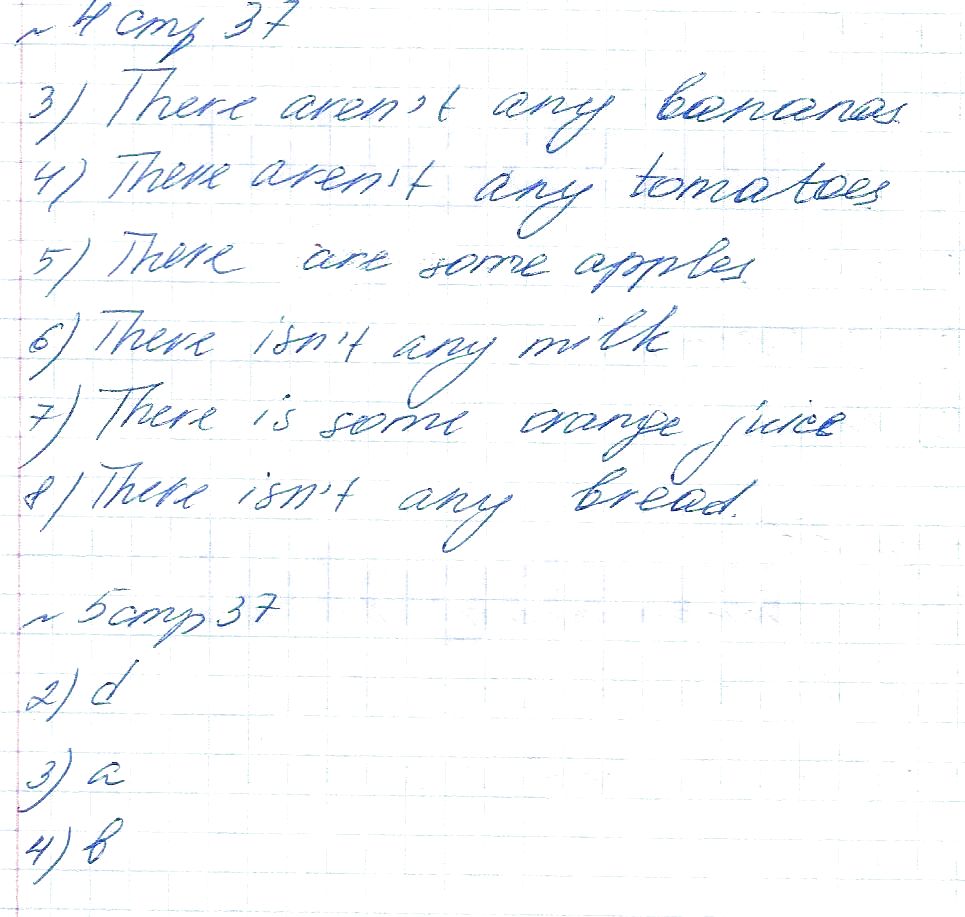 № 4 стр 37
3) There aren't any bananas.
4) There aren't any tomatoes
5) There are some apples
6) There isn't any milk
7) There is some orange juice
8) There isn't any bread.
№ 5 стр 37
2) d
3) a
4) b